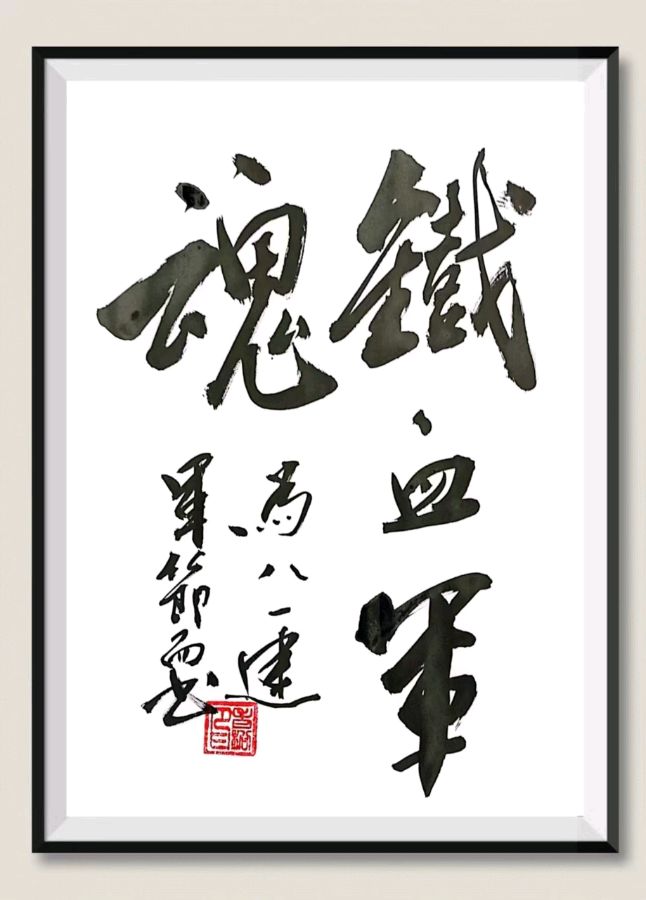 鐵血軍
魂
為八一建
軍節而书